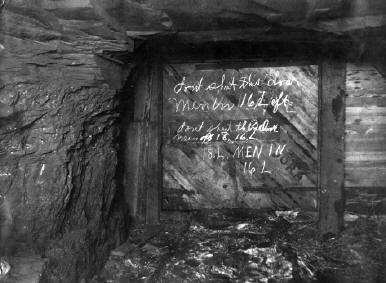 dont shut this door
Men in 16 L off
dont shut this door
men 18, 16. L
8 L. MEN IN
16 L